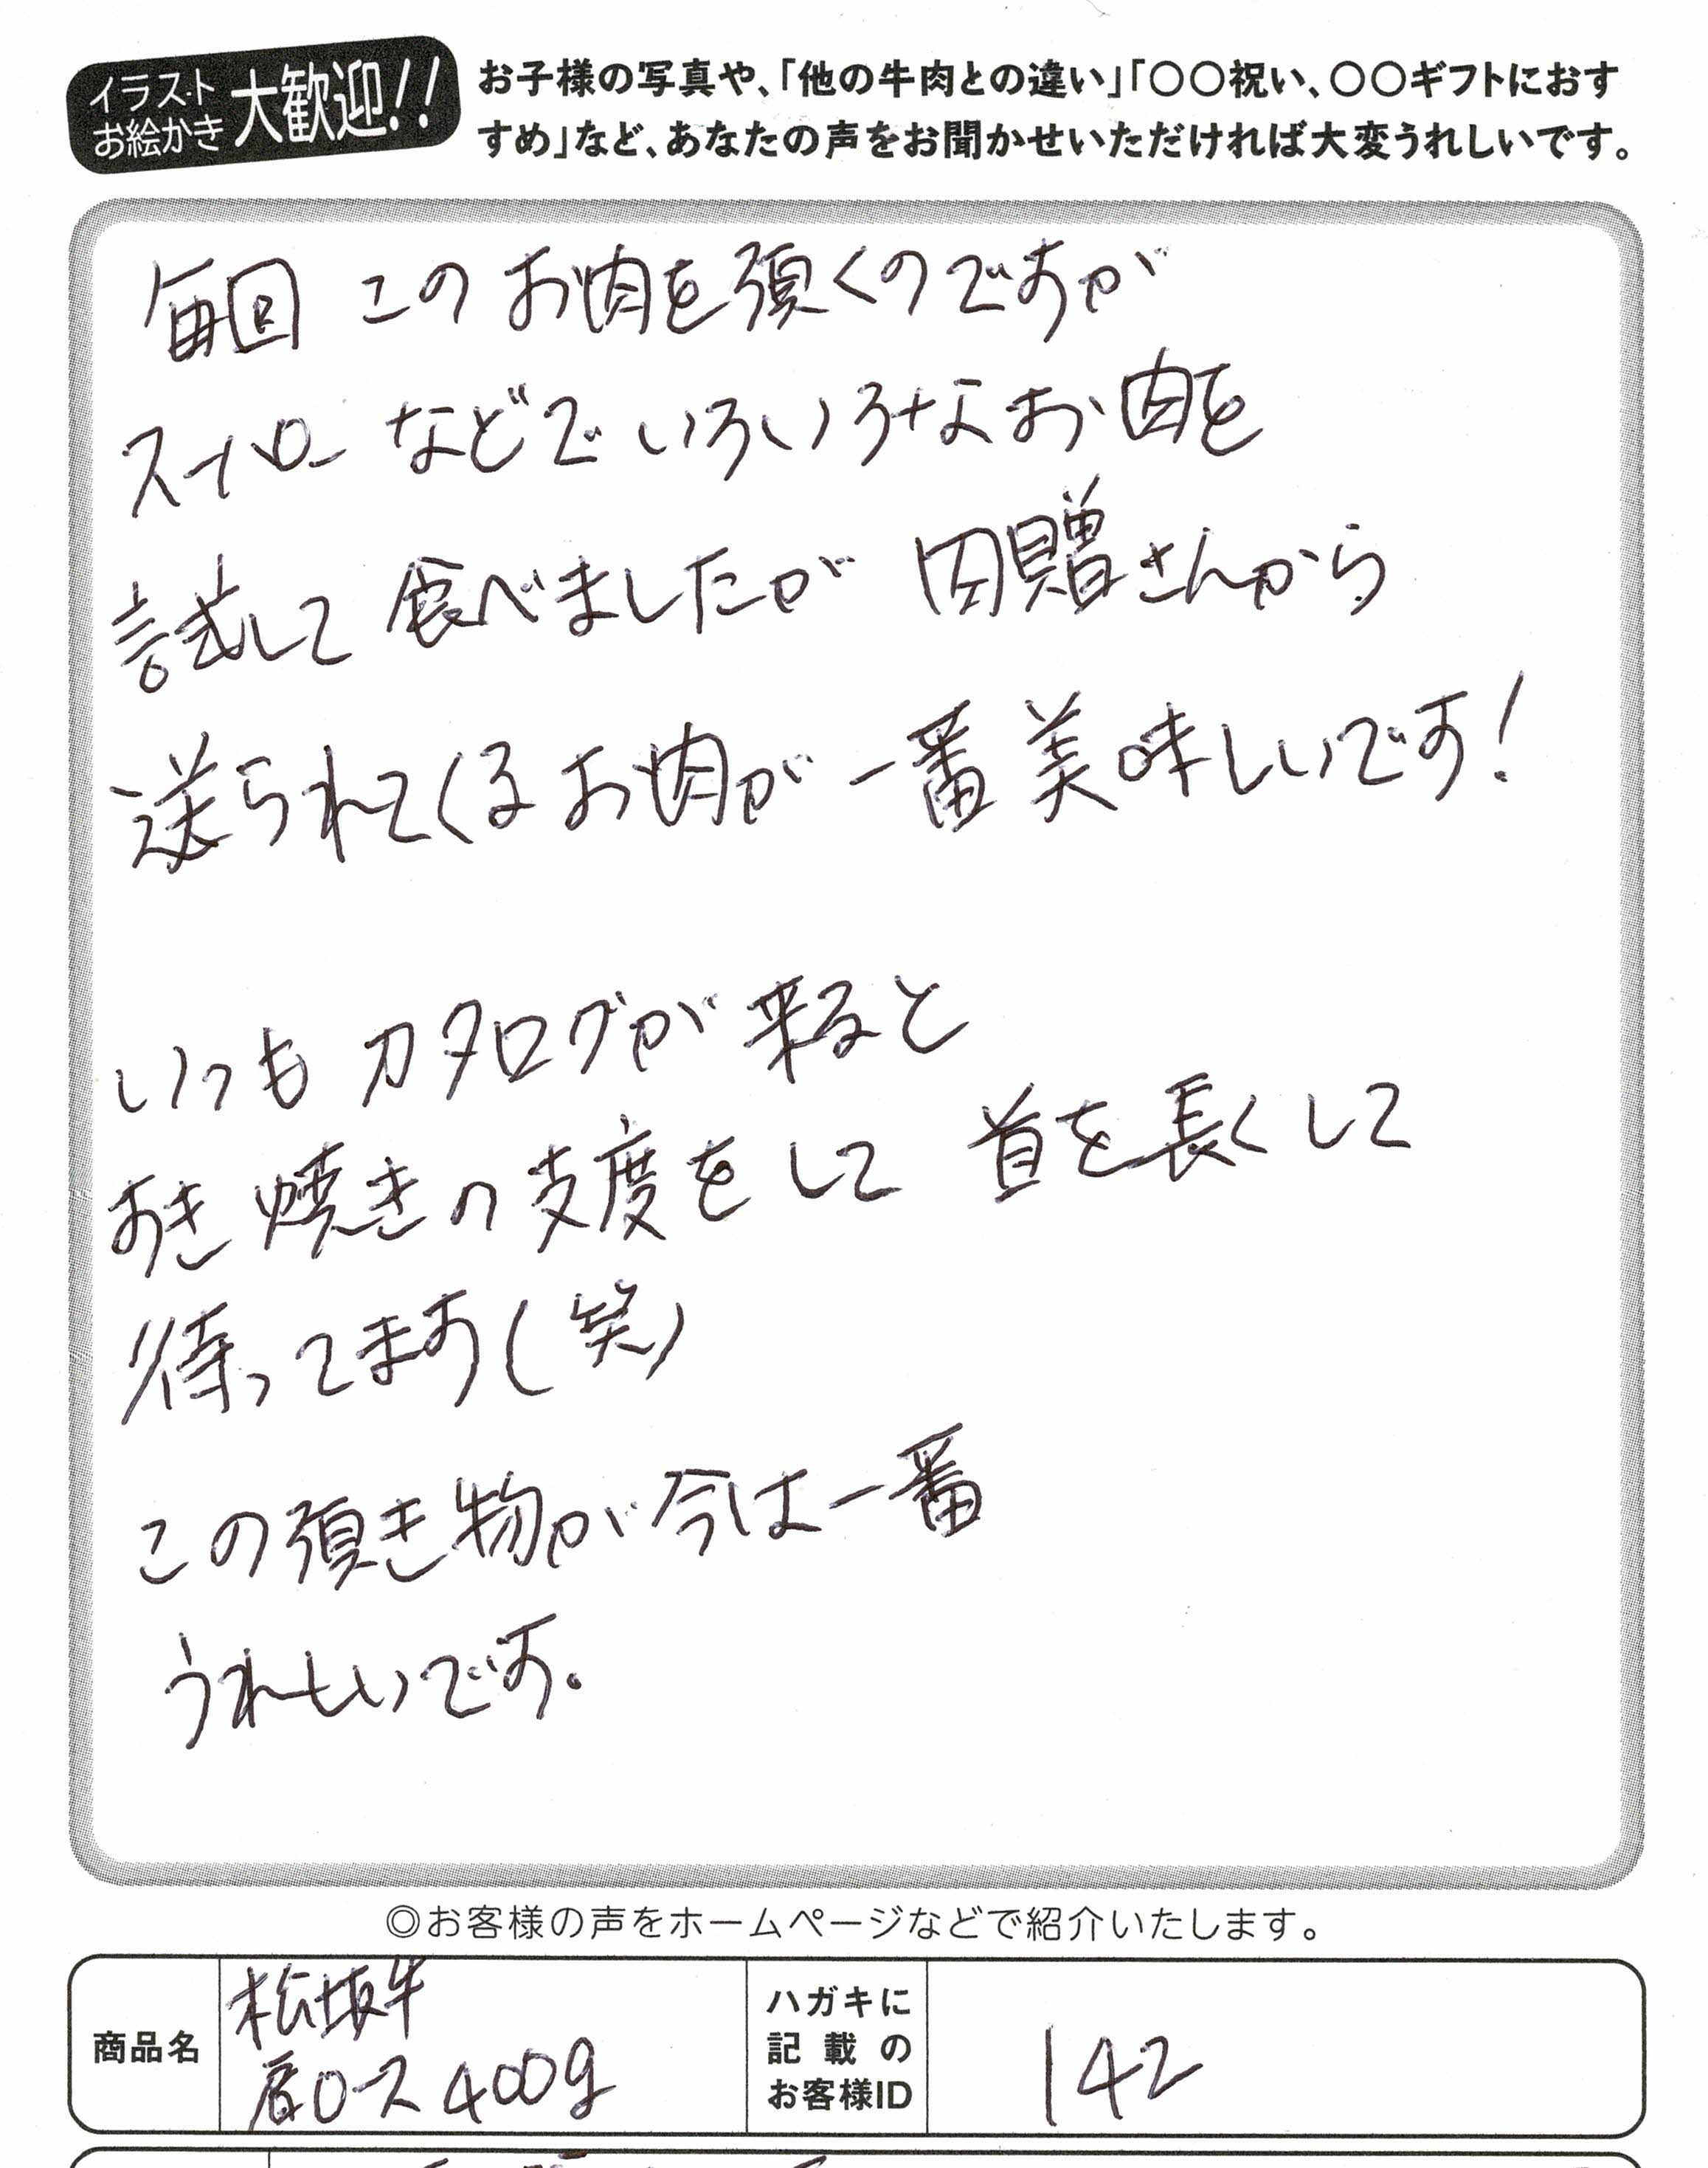 イラスト
お絵かき
大歓迎!!
お子様の写真や、「他の牛肉との違い」「〇〇祝い、〇〇ギフトにおす
すめ」など、あなたの声をお聞かせいただければ大変うれしいです。
毎回 このお肉を頂くのですが
スーパー などで いろいろなお肉を
試して 食べましたが 贈さんから
送られてくるお肉が 一番 美味しいです!
いつも カタログが 来ると
すき焼きの支度をして 首を長くして
待ってます(笑)
この頂き物が今は一番
うれしいです。
◎お客様の声をホームページなどで紹介いたします。
商品名
松坂牛
肩ロース400g
ハガキに
記載の
お客様ID
142